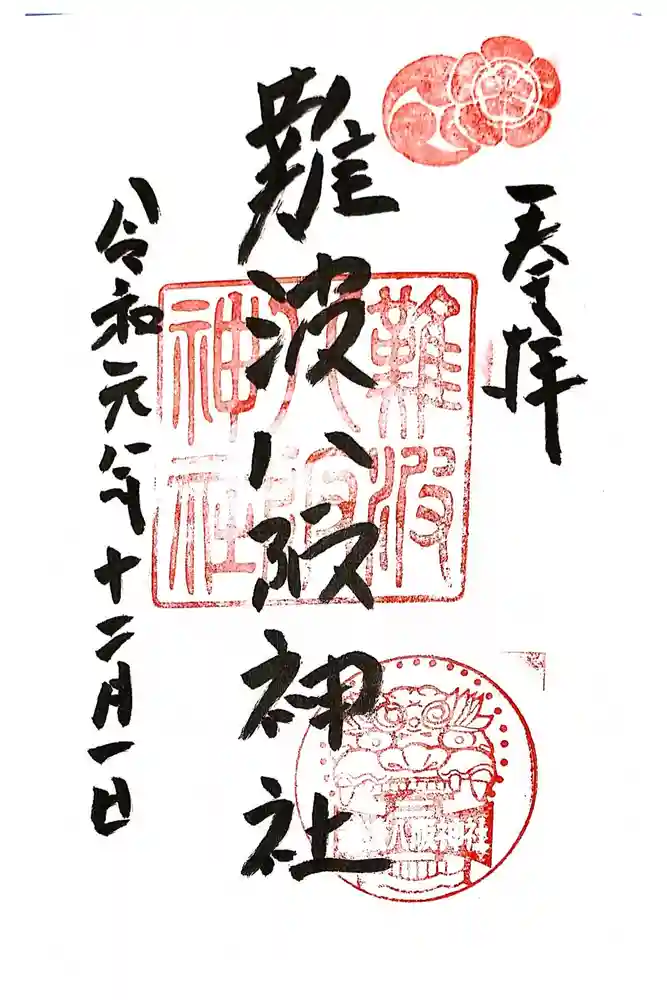 奉拝
難波八阪神社
令和元年十二月一日
難波
八阪
神社
難波八阪神社